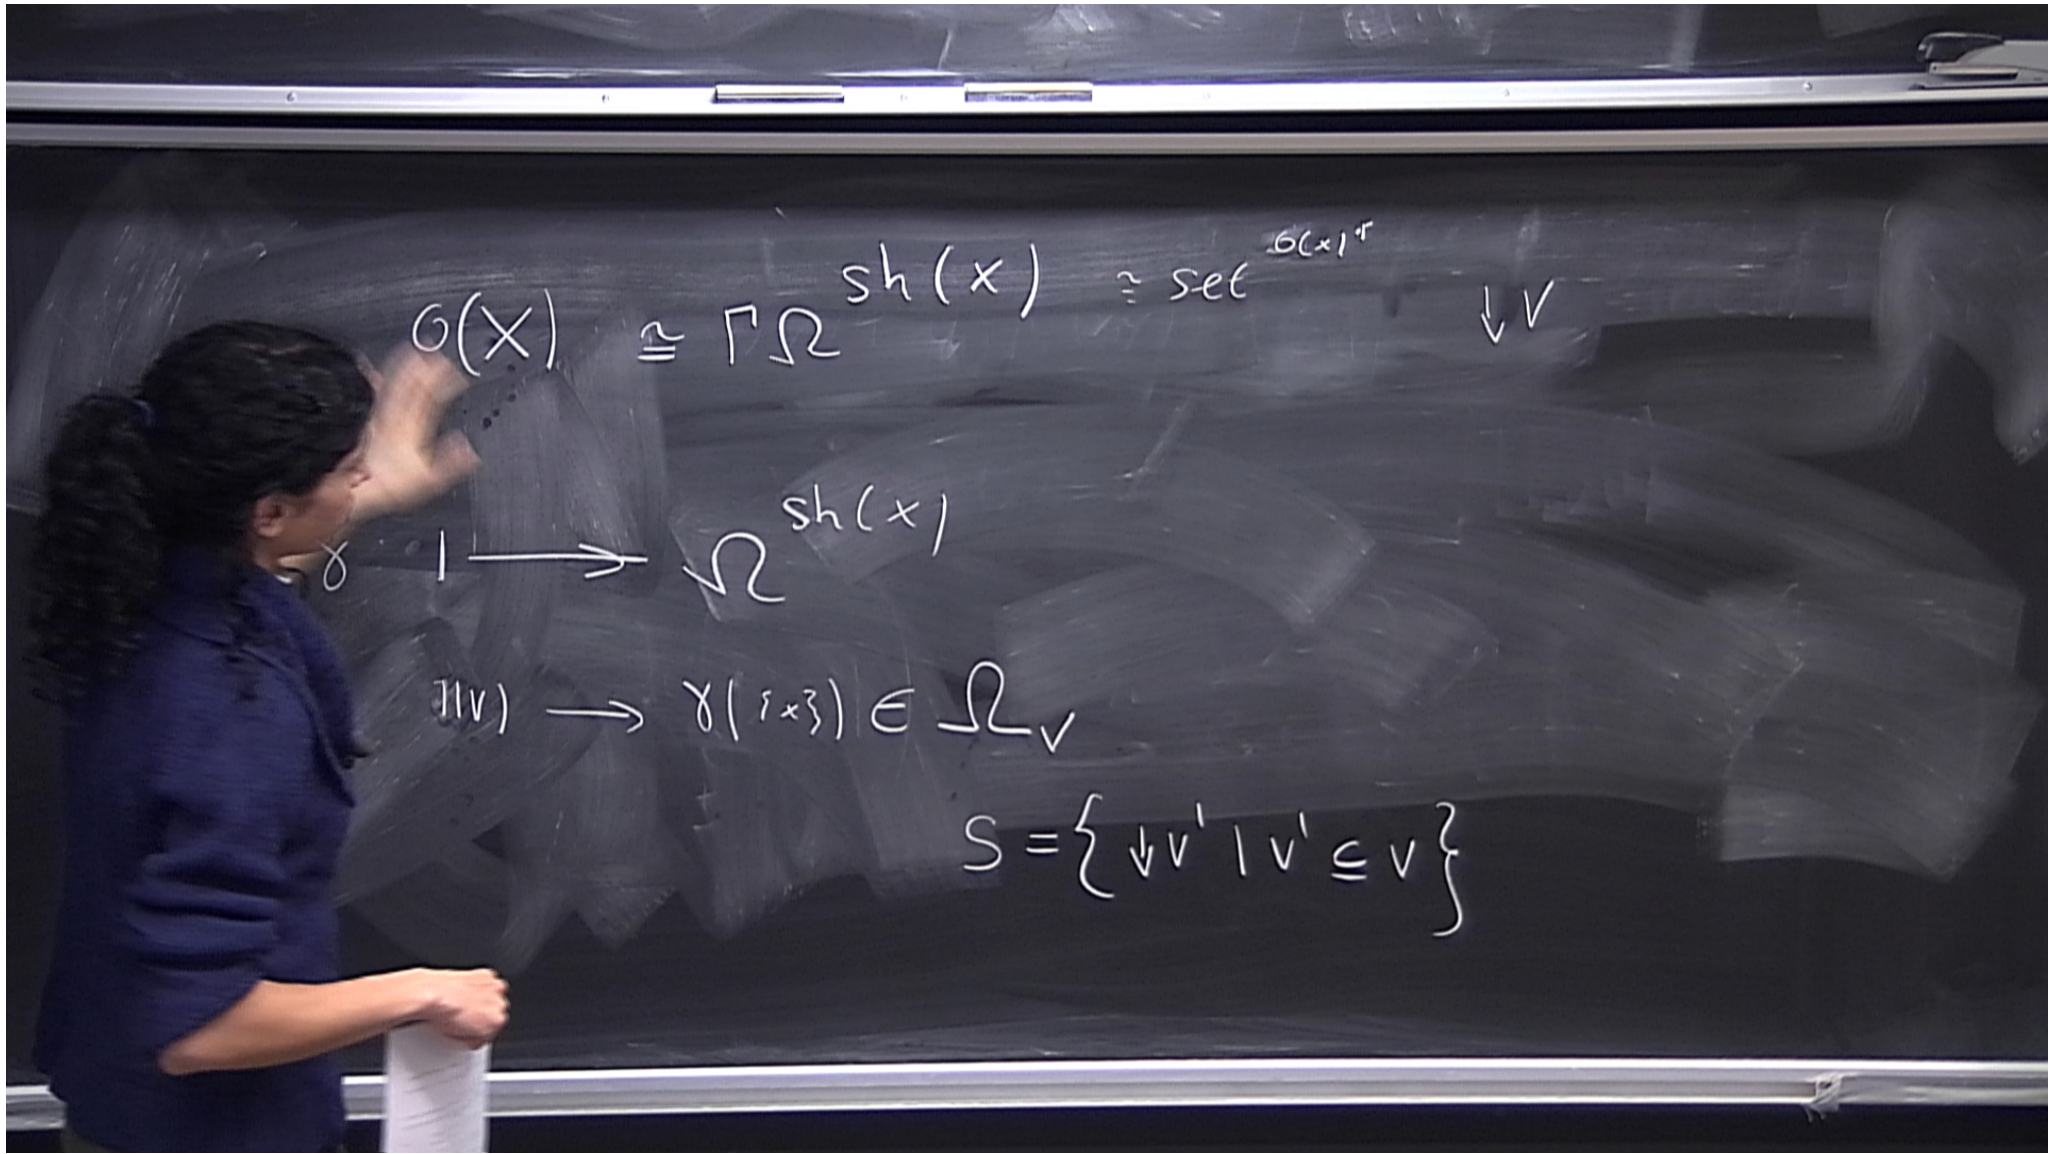 O(X) ≅ ΓΩ^{sh(x)} ≅ set^{O(x)^{op}} ↓V
γ 1 → Ω^{sh(x)}
1(V) → γ({x}) ∈ Ω_V
S = {↓V' | V' ⊆ V}